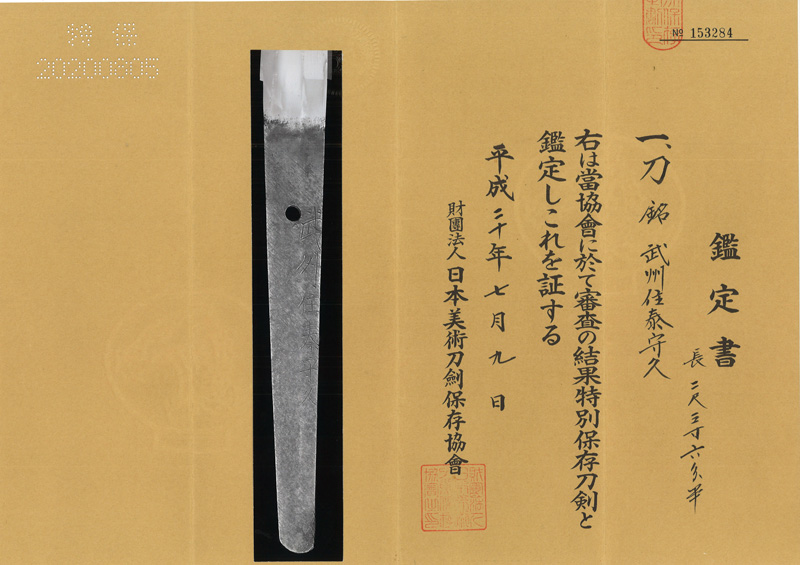 № 153284
鑑定書
長 二尺三寸六分半
一、刀 銘 武州住泰守久
右は當協會に於て審査の結果特別保存刀剣と
鑑定しこれを証する
平成二十年七月九日
財團法人日本美術刀劍保存協會
特保
20200605